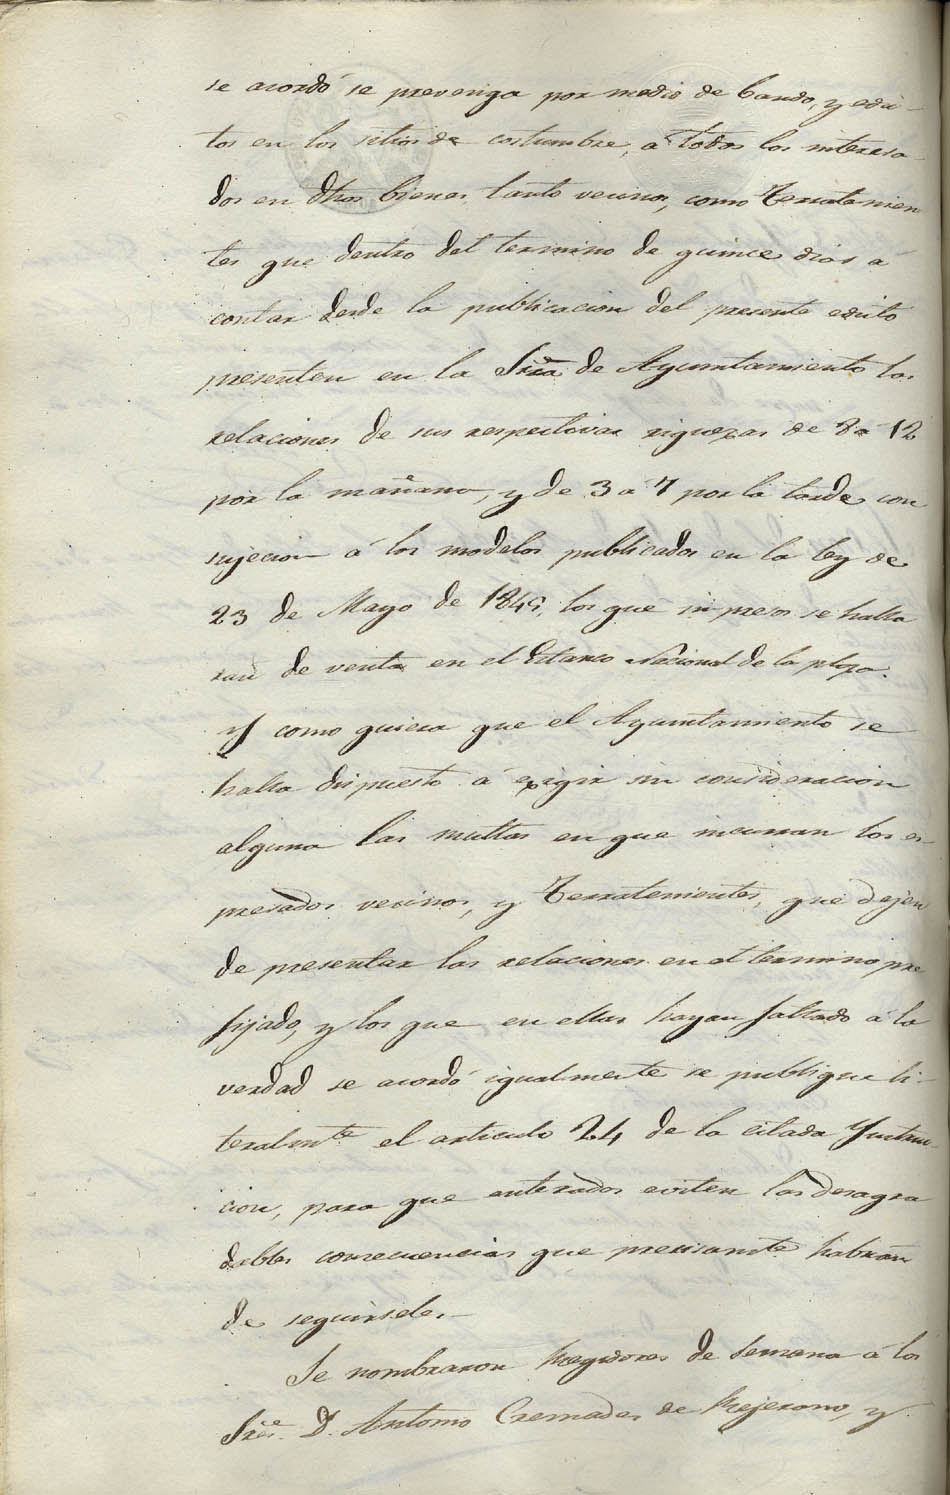 se acordó se prevenga por medio de bando, y edic-
tos en los sitios de costumbre, a todos los interesa
dos en dhos bienes, tanto vecinos, como Terratenien
tes que dentro del termino de quince dias á
contar desde la publicacion del presente edicto
presenten en la Sria de Ayuntamiento las
relaciones de sus respectivas riquezas de 8 a 12
por la mañana, y de 3 a 7 por la tarde con
sujecion á los modelos publicados en la ley de
23 de Mayo de 1845, los que impresos se halla
ran de venta en el Estanco Nacional de la plaza.
Y como quiera que el Ayuntamiento se
halla dispuesto á exigir sin consideracion
alguna las multas en que incurran los es-
presados vecinos, y Terratenientes, que dejen
de presentar las relaciones en el termino pre
fijado, y los que en ellas hayan faltado á la
verdad se acordó igualmente se publique li-
teralmte el articulo 24 de la citada Ynstruc-
cion, para que enterados eviten las desagra
dables consecuencias que precisamte habrán
de seguirseles.—
Se nombraron Regidores de Semana á los
Sres D. Antonio Cremades de Mejerono, y